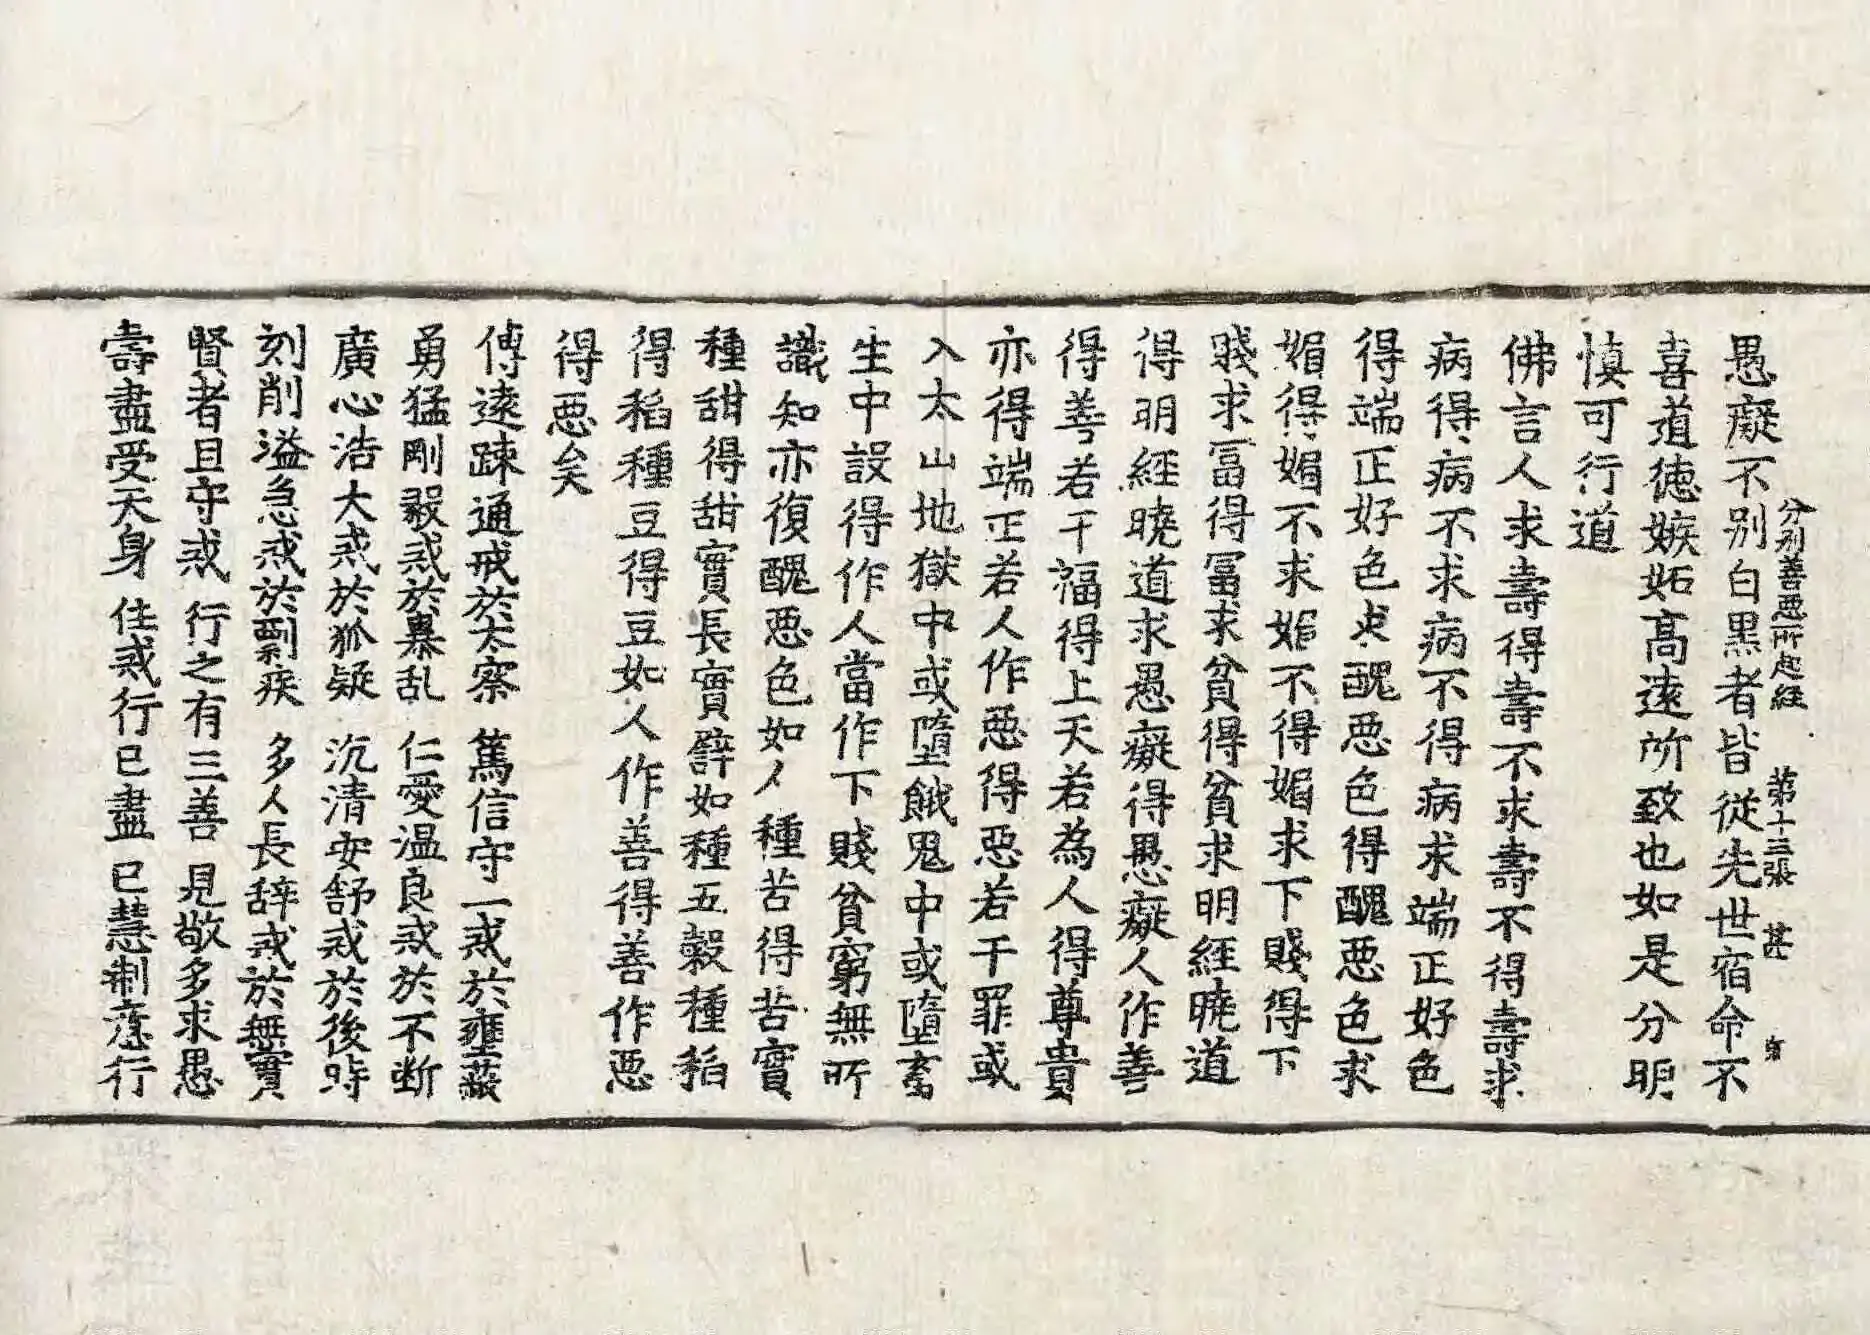 分別善惡所起經 第十三張 甚
愚癡不別白黑者皆從先世宿命不
喜道徳嫉妬高遠所致也如是分明
慎可行道
佛言人求壽得壽不求壽不得壽求
病得病不求病不得病求端正好色
得端正好色求醜惡色得醜惡色求
媚得媚不求媚不得媚求下賤得下
賤求冨得冨求貧得貧求明經曉道
得明經曉道求愚癡得愚癡人作善
得善若干福得上天若為人得尊貴
亦得端正若人作惡得惡若干罪或
入太山地獄中或墮餓鬼中或墮畜
生中設得作人當作下賤貧窮無所
識知亦復醜惡色如人種苦得苦實
種甜得甜實長實譬如種五穀種稻
得稻種豆得豆如人作善得善作惡
得惡矣
傅逺踈通戒於太察 篤信守一戒於壅蔽
勇猛剛毅戒於暴乱 仁愛温良戒於不断
廣心浩大戒於狐疑 沉清安舒戒於後時
刻削溢急戒於剽疾 多人長辞戒於無實
賢者且守戒 行之有三善 見敬多求愚
壽盡受天身 住戒行已盡 已慧制意行